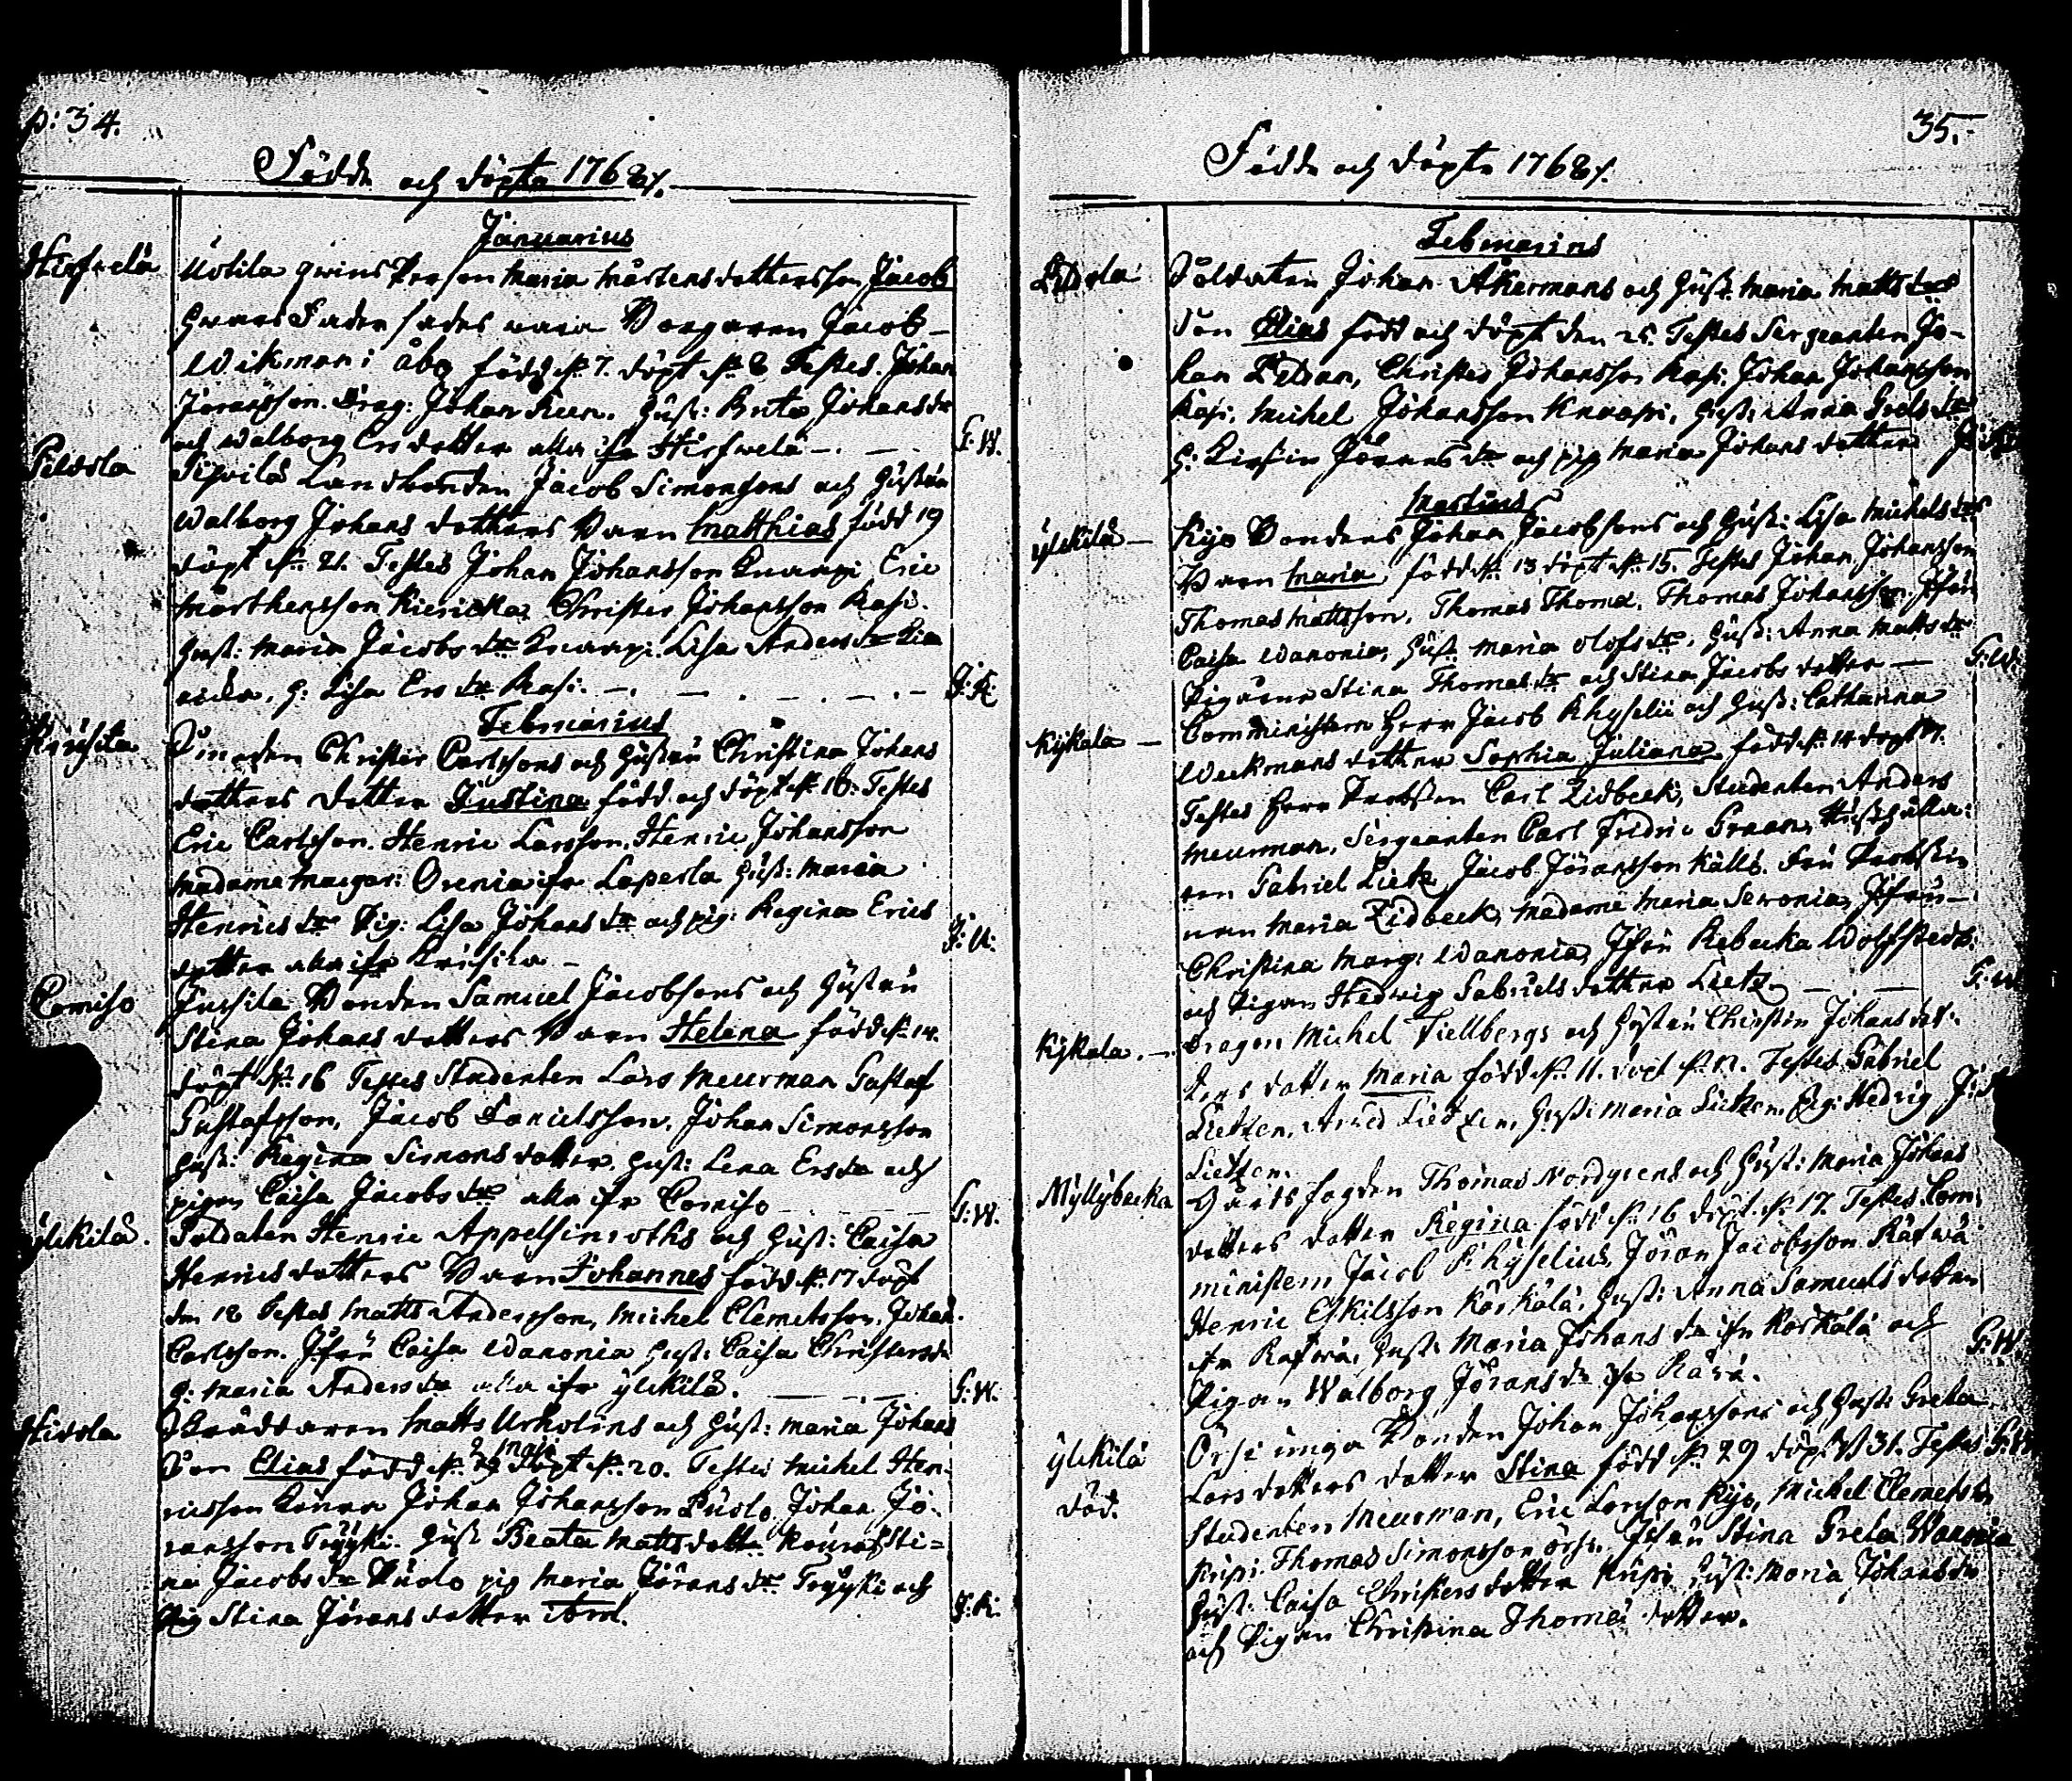 p: 34.
Födde och döpte 1768
Januarius
Hirfvelä Uotila qwins Person Maria Mårtensdottersson Jacob
hwars Fader sades vara Borgaren Jacob
Wikman i åbo född d. 7. döpt d. 8 Testes. Johan
Jöransson. Drag: Johan Hust: Brita Johansdr
och Walborg Ersdotter alla ifr Hirfwelä G:W.
Peldola Landbonden Jacob Simonssons och Hustru
Walborg Johans dotters Barn Matthias född 19
döpt d. 21. Testes Johan Johansson Knaapi Eric
Mårthensson Christer Johansson Rasi.
Hust: Maria Jacobs dr Knaapi Lisa Anders dr
h: Lisa Ers dr Rasi.
Februarius
Smeden Christer Carlssons och Hustru Christina Johans
dotters dotter Justina född och döpt d. 16: Testes
Eric Carlsson. Henric Larsson. Henric Johansson
Madame Margar: Orenia ifr Laperla Hust: Maria
Henrics dr Pig: Lisa Johans dr och pig: Regina Erics
dotter alla ifr
Comiso Bonden Samuel Jacobsons och Hustru
Stina Johans dotters Barn Helena född d. 14.
döpt d. 16 Testes Studenten Lars Meurman Gustaf
Gustafsson, Jacob Danielsson. Johan Simonsson
Hust: Regina Simons dotter. Hust: Lena Ersdr och
pigan Caisa Jacobs dr alla ifr Comiso G:W.
ylikilä. Soldaten Henric Appelsinroths och Hust: Caisa
Henricsdotters Barn Johannes född d. 17 döpt
den 18 Testes Matts Andersson, Michel Clemetsson. Johan
Carlsson. Jfru Caisa Wanonia Hust: Caisa Christersdr
h: Maria Andersdr alla ifr ylikilä. G:W.
Skräddaren Matts och Hust: Maria Johans
Son Elias född d. döpt d. 20. Testes Michel Hen
ricsson Johan Johansson Puolo Johan Jö
ransson Tryyki. Hust Beata Mattsdotter Sti=
na Jacobsdr Puolo pig Maria Jörans dr Tryyki och
Pig Stina Jörans dotter
35.
Födde och döpte 1768
Februarius
Soldaten Johan Åkermans och Hust. Maria Matts drs
Son Elias född och döpt den 25. Testes Sergeanten Jo-
han Christer Johansson Rasi. Johan Johansson
Rasi. Michel Johansson Knaapi, Hust: Anna Grels dr
h: Kirstin Jörans dr och pig Maria Johans dotter
Martius
ylikilä Kijo Bondens Johan Jacobssons och Hust: Lisa Michelsdrs
Barn Maria född d. 13 döpt d. 15. Testes Johan Johansson
Thomas Mattsson. Thomas Thomæ. Thomas Johansson. Jfru
Caisa Wanonia, Hust Maria Olofs dr, Hust: Anna Matts dr
Pigorne Stina Thomas dr och Stina Jacobs dotter G:W.
Kijkala Comministern Herr Jacob Rhyselii och Hust: Catharina
Weckmans dotter Sophia Juliana född d. 14 döpt
Testes Herr Probsten Carl Lidbeck, Studenten Anders
Meurman, Sergeanten Carl Fredric Graan, Rusthålla:
ren Gabriel Lietz Jacob Jöransson Källs. Fru Probstin
nan Maria Lidbeck, Madame Maria Seronia, Jfru
Christina Marg: Wanonia, Jfru Rebecka
och Pigan Hedwig Gabriels dotter Lietz.
Kijkala. Dragon Michel Fiellbergs och Hustru Christin Johans
ters dotter Maria född d. 11. döpt d. 17. Testes Gabriel
Lietzen, Arved Lietzen, Hust: Maria Lietzen Pig: Hedvig
Lietzen.
Myllybacka Gårds fogden Thomas Nordgrens och Hust: Maria Johans
dotters dotter Regina född d. 16 döpt d. 17. Testes Com
ministern Jacob Rhyselius, Jöran Jacobsson Rafwa
Henric Eskilsson Karkola. Hust: Anna Samuels dotter
ifr Hust. Maria Johans dr ifr Karkola och
Pigan Walborg Jörans dr ifr G:W.
ylikilä
död. unga Bonden Johan Johanssons och Hust: Greta
Lars dotters dotter Stina född d. 29 döpt d 31. Testes
Studenten Meurman, Eric Larsson Kijo, Michel Clemetsson
Thomas Simonsson Jfru Stina Greta Wanonia
Hust. Caisa Christers dotter Hust: Maria Johansdr
och Pigan Christina Thomæ dotter.